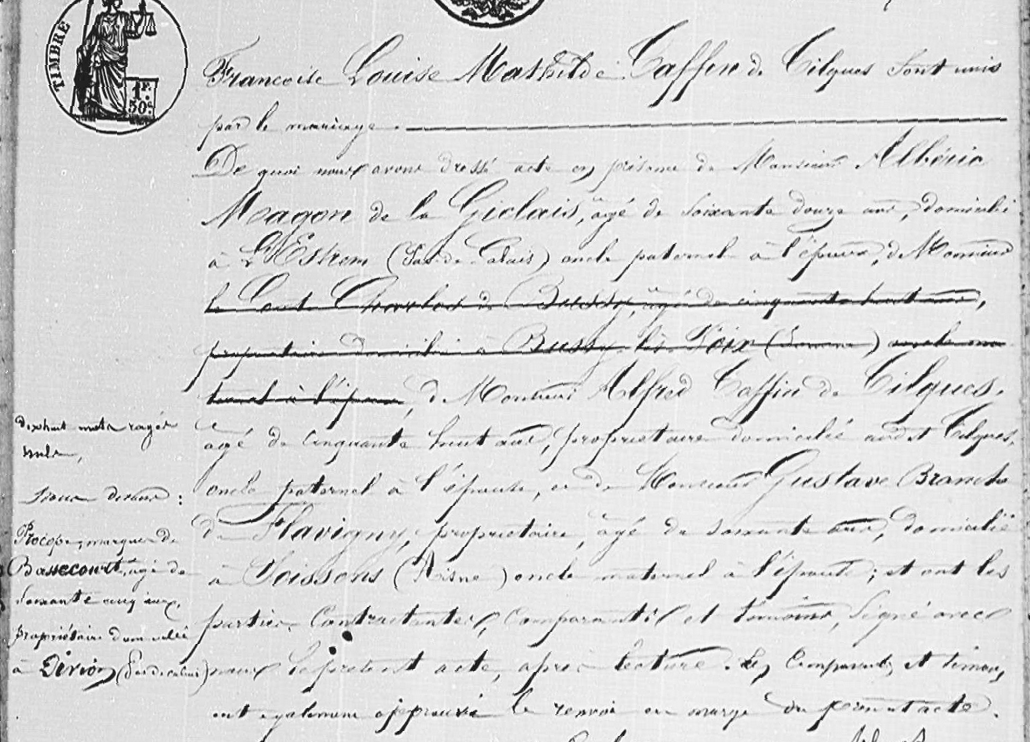 TIMBRE
1F.
50c
Françoise Louise Mathilde Taffin de Tilques sont unis
par le mariage.
De quoi nous avons dressé acte en présence de Monsieur Albéric
Magon de la Giclais, âgé de soixante douze ans, domicilié
à L'Estrem (Pas-de-Calais) oncle paternel à l'époux, de Monsieur
le Comte Charles de Bussy, âgé de cinquante huit ans,
propriétaire domicilié à Bussy les Poix (Somme) oncle ma-
ternel à l'époux, de Monsieur Alfred Taffin de Tilques,
âgé de cinquante huit ans, propriétaire domicilié audit Tilques,
oncle paternel à l'épouse, et de Monsieur Gustave Branche
de Flavigny, propriétaire, âgé de soixante ans, domicilié
à Soissons (Aisne) oncle maternel à l'épouse; et ont les
parties contractantes, comparants et témoins, signé avec
nous le présent acte, après lecture. Les comparants et témoins,
ont également approuvé le renvoi en marge du présent acte.
dixhuit mots rayés
nuls,
Procope, marquis de
Bassecourt, âgé de
soixante cinq ans,
propriétaire domicilié
à Divion (Pas de calais)